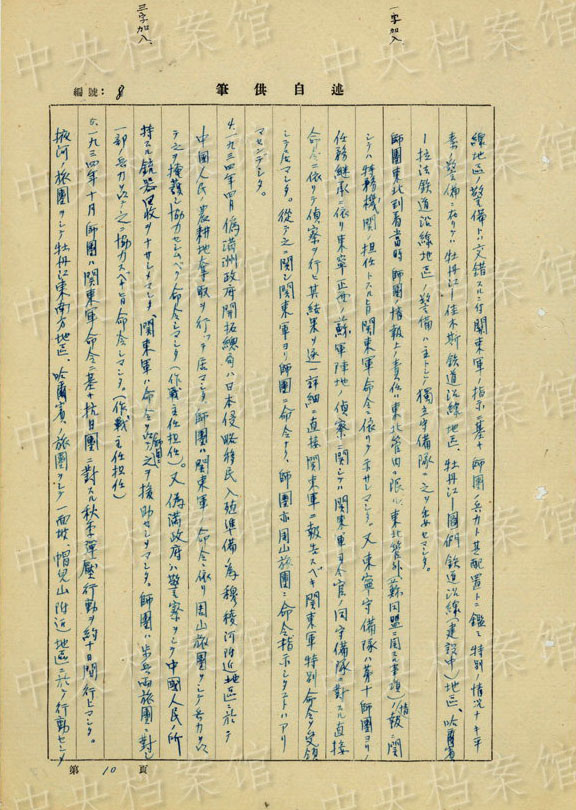 三字加入、
一字加入、
編號: 8
述自供筆
線地区ノ警備トハ交錯スルニ付関東軍ノ指示ニ基キ師団ノ兵力ト其配置トニ鑑ミ特別ノ情況ナキ平
素ノ警備ニ在リテハ牡丹江ー佳木斯鉄道沿線地区、牡丹江ー図們鉄道沿線(建設中)地区、哈爾賓
ー拉法鉄道沿線地区ノ警備ハ主トシテ独立守備隊ノ之ヲ
師団東北到着当時師団ノ情報上ノ責任ハ東北管内ニ限ル、東北管外(蘇同盟ニ関スル事項)ノ情報ニ関
シテハ特務機関ノ担任トスル旨関東軍命令ニ依リテ示サレマシタ。又東寧守備隊ハ第十師団ヨリノ
任務継承ニ依リ東寧正面ノ蘇軍陣地ノ偵察ニ関シテハ関東軍司令官ノ同守備隊ニ対スル直接
命令ニ依リテ偵察ヲ行ヒ其結果ヲ逐一詳細ニ直接関東軍ニ報告スベキ関東軍特別命令ヲ受領
シテ居マシタ。従テ之ニ関シ関東軍ヨリ師団ニ命令ナク、師団亦周山旅団ニ命令指示シタコトハアリ
マセンデシタ。
4.一九三四年四月偽満洲政府開拓総局ハ日本侵略移民入殖準備ノ為穆稜河附近地区ニ於テ
中国人民ノ農耕地奪取ヲ行ツテ居マシタ。師団ハ関東軍ノ命令ニ依リ周山旅団ヲシテ兵力
テ之ヲ掩護シ協力セシムベク命令シマシタ(作戦主任担任)。又偽満政府ハ警察ヲシテ中国人民ノ所
持スル銃器回収ヲナサシメマシタ、関東軍ハ命令シ師団ヲシテ之ヲ援助セシメマシタ。師団ハ歩兵両旅団ニ対シ
一部ノ兵力ヲ以テ之ニ協力スベキ旨命令シマシタ。(作戦主任担任)
5.一九三四年十月師団ハ関東軍ノ命令ニ基キ抗日団ニ対スル秋季弾圧行動ヲ約十日間行ヒマシタ。
掖河ノ旅団ヲシテ牡丹江東南方地区、哈爾賓ノ旅団ヲシテ一面坡、帽児山附近ノ地区ニ於テ行動セシメ
第 10 頁
中央档案馆